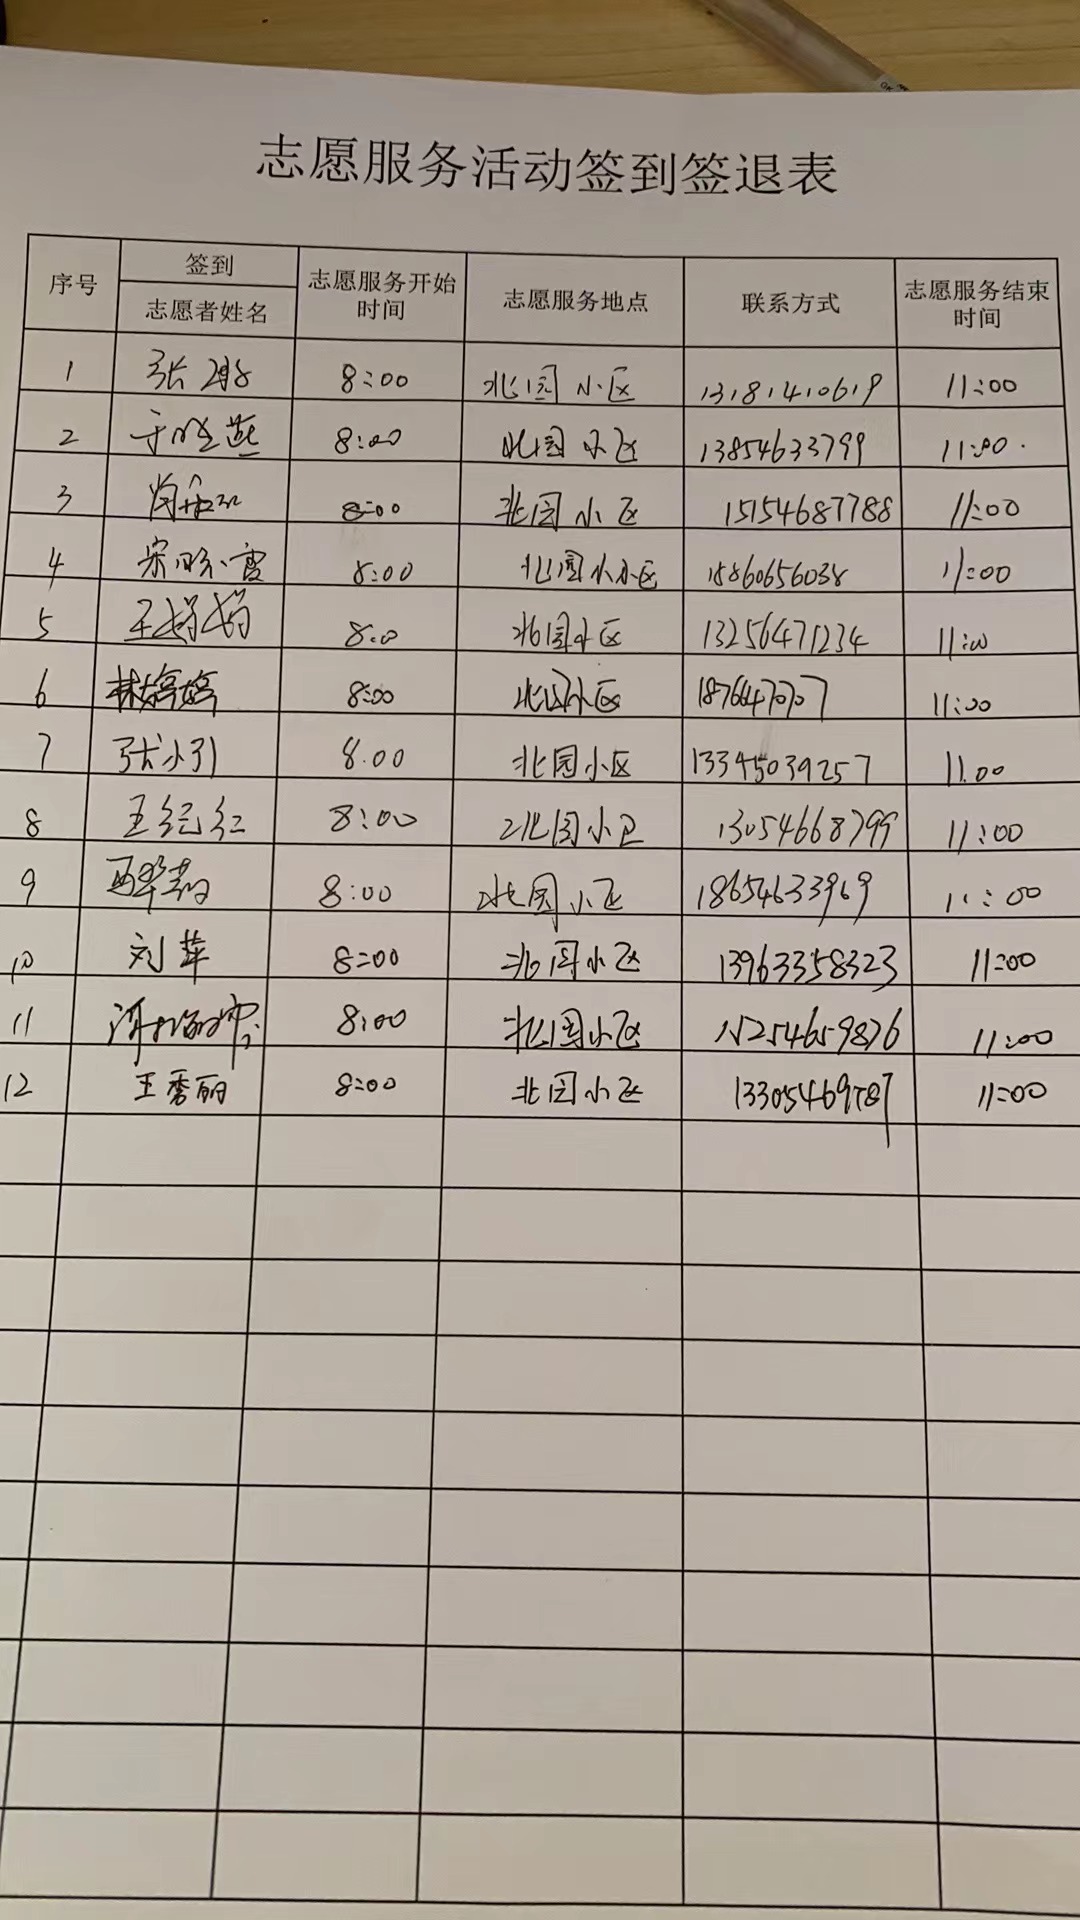 志愿服务活动签到签退表
序号 签到 志愿者姓名 志愿服务开始时间 志愿服务地点 联系方式 志愿服务结束时间
1 张 8:00 北园小区 13181410619 11:00
2 于晓燕 8:00 北园小区 13854633799 11:00.
3 8:00 北园小区 15154687788 11:00
4 宋 雪 8:00 北园小小区 18860656038 11:00
5 王娟娟 8:0 北园小区 13256471234 11:00
6 林婷婷 8:00 北园小区 11:00
7 张小引 8.00 北园小区 13345039257 11.00
8 王纪红 8:00 北园小区 13054668799 11:00
9 8:00 北园小区 18654633969 11:00
10 刘萍 8:00 北园小区 13963358323 11:00
11 8:00 北园小区 15254659876 11:00
12 王秀丽 8:00 北园小区 13305469787 11:00